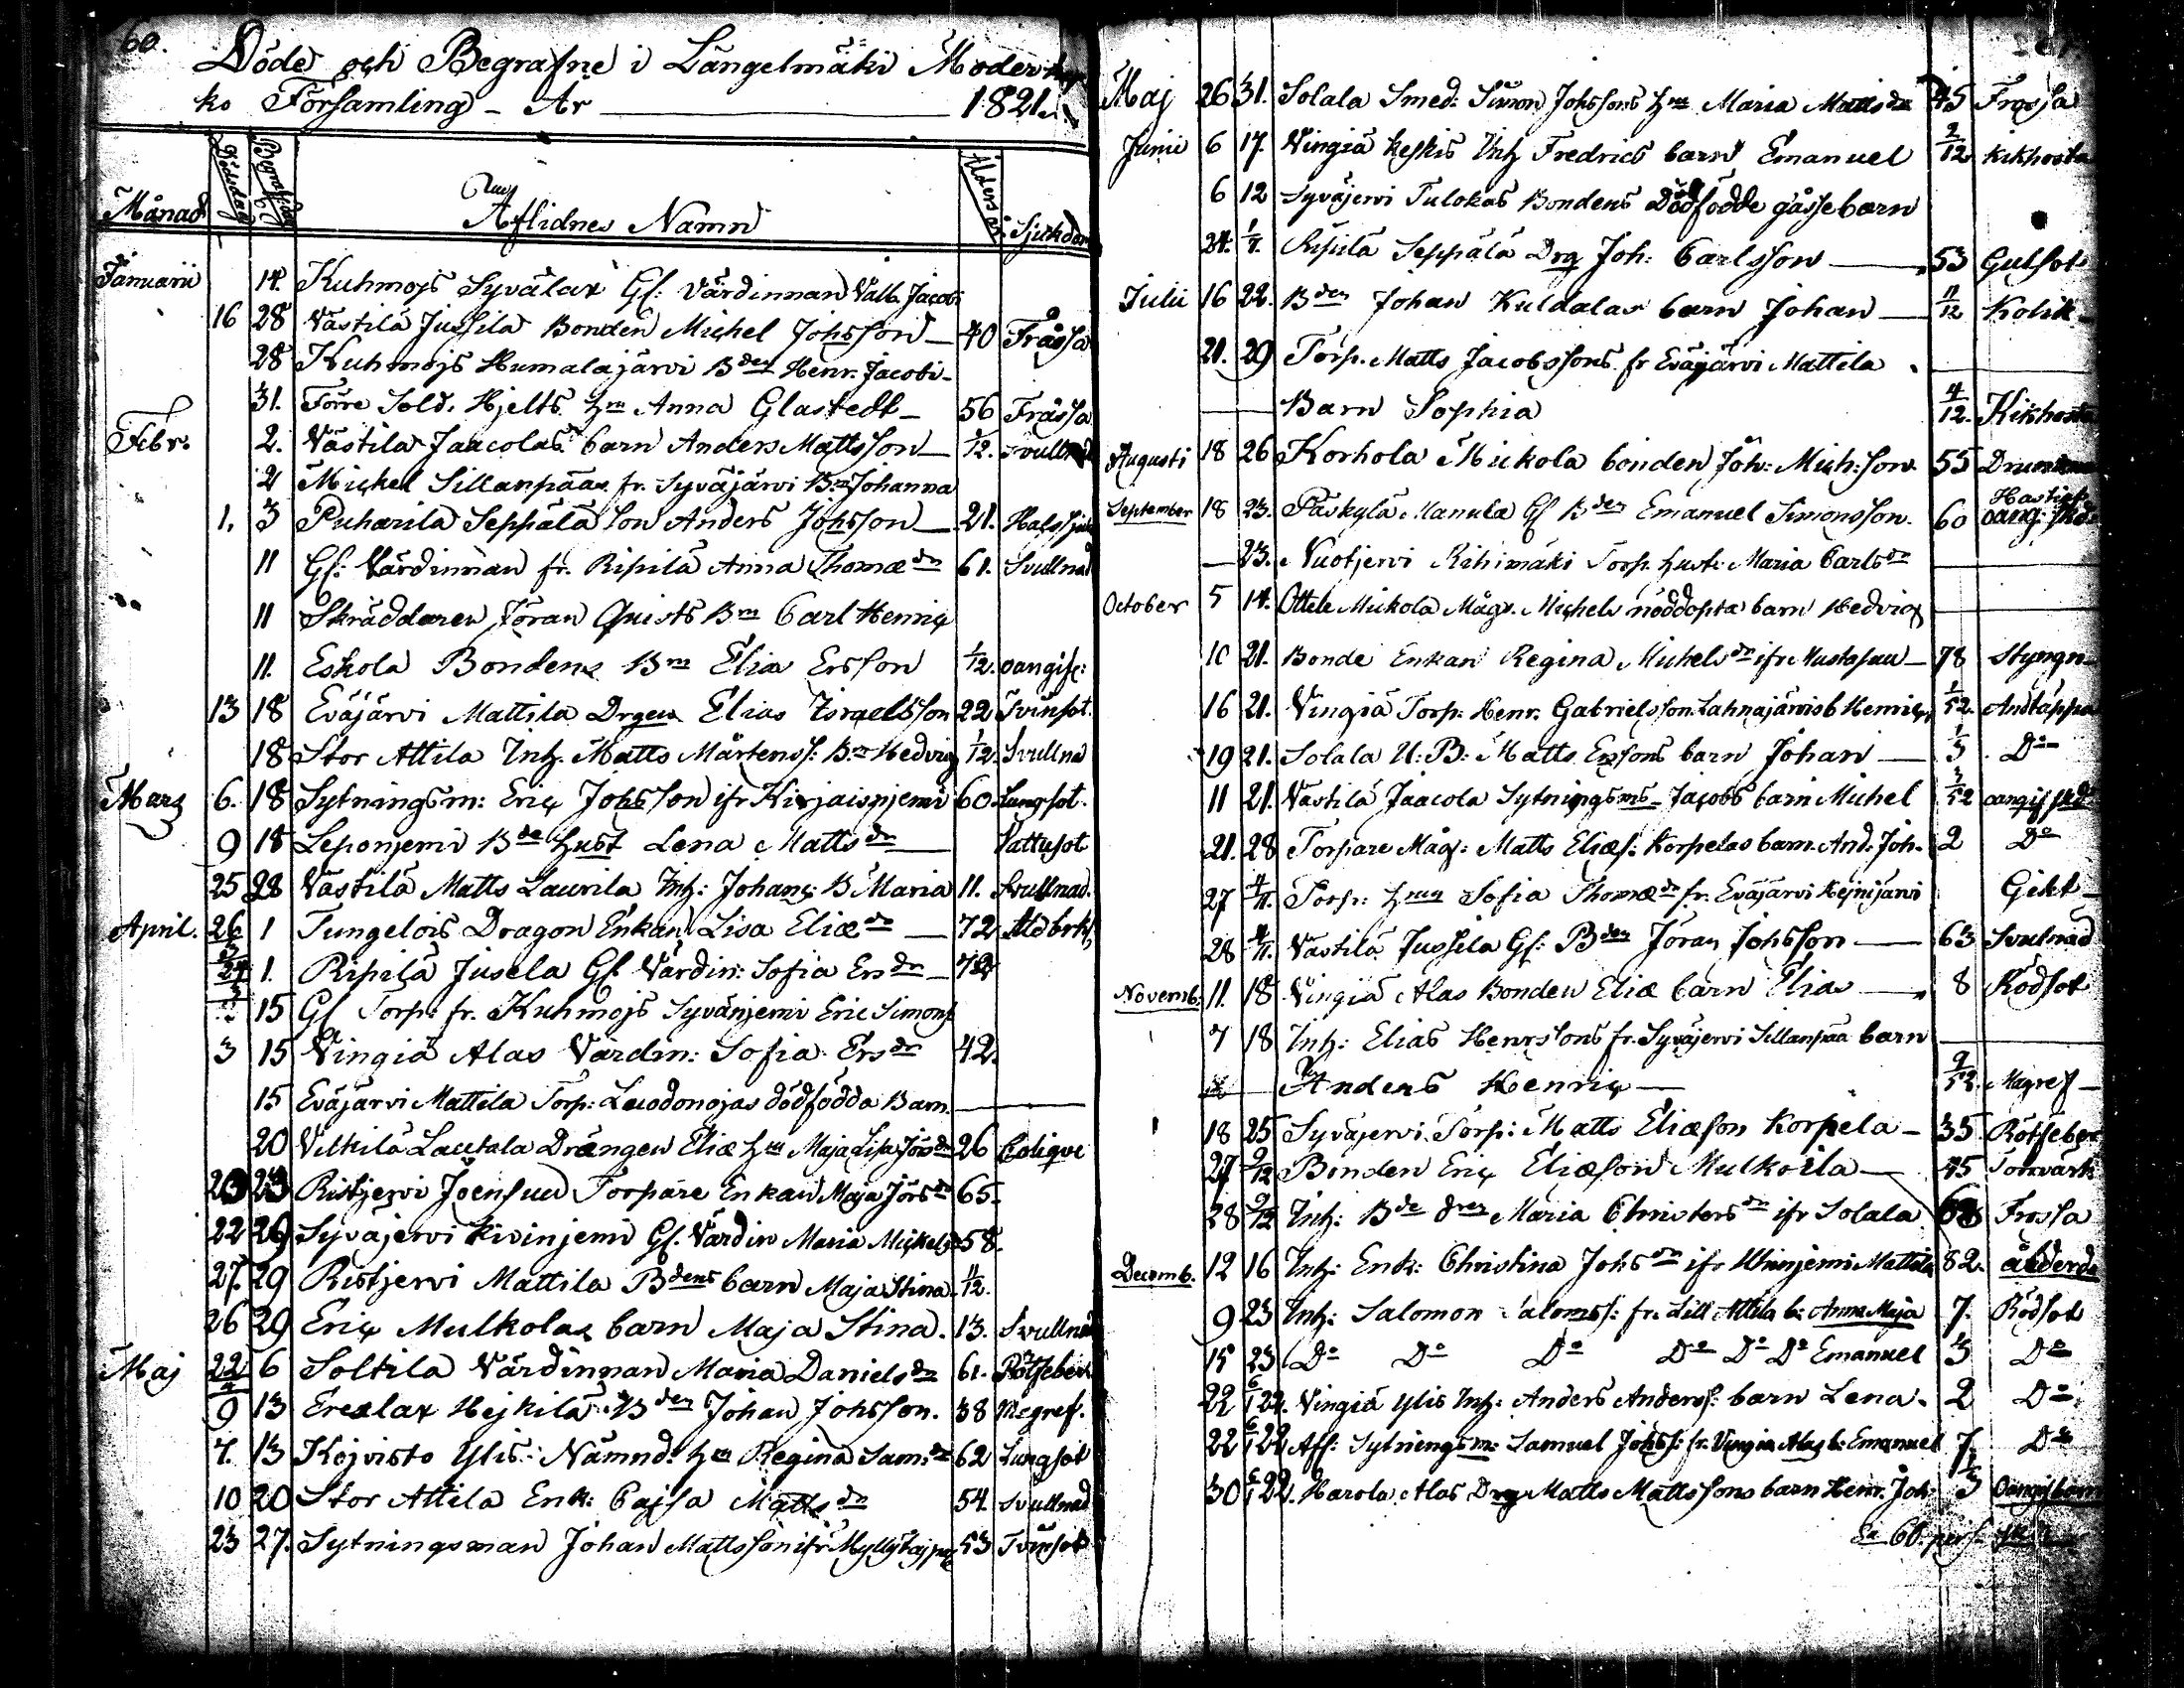 60.
Döde och Begrafne i Längelmäki Moder
ko Församling - År 1821.
Månad Dödedag Begrafn.dag Aflidnes Namn Ålders år Sjukdom
Januarii 14. Kuhmois Syvälax Gl: Värdinnan Valb. Jacobi
16 28 Västilä Jussila Bonden Michel Johsson 40 Fråssa
28 Kuhmojs Humalajärvi Bden Henr. Jacobi
31. Förre Sold. Hjelts hm Anna Glastedt 56 Fråssa
Febr. 2. Västila Jaacolas barn Anders Mattsson 1/12. Svullnad
2 Mickel Sillanpääs fr. Syväjärvi Bn Johanna
1. 3 Puharila Seppälä Son Anders Johsson 21. Halssjuk
11 Gl: Värdinnan fr. Ripilä Anna Thomæ dr 61. Svullnad
11 Skräddaren Jöran Quists Bn Carl Henric
11. Eskola Bondens Bn Elia Ersson 1/12. oangif:
13 18 Eväjärvi Mattila Drgen Elias Israelsson 22 Tvinsot.
18 Stor Attila Inh. Matts Mårtenss: Bn Hedvig 1/12. Svullna
Mars 6. 18 Sytningsm: Eric Johsson ifr Kirjaisnjemi 60. Lungsot.
9 18 Leponjemi Bde hust Lena Matts dr Vattusot
25 28 Västilä Matts Laurila Inh: Johans B Maria 11. Svullnad.
April. 26/3 1 Tungelois Dragon Enkan Lisa Eliæ dr 72 Åldbrh
24/3 1. Ripilä Jusela Gl. Värdin: Sofia Ers dr 72
15 Gl Torp: fr. Kuhmojs Syvänjemi Eric Simons
3 15 Vingiä Alas Värdin: Sofia Ers dr 42.
15 Eväjärvi Mattila Torp: dödfödda Barn
20 Vilkilä Lautala Drängen Eliæ hm Maja Lisa Jörs dr 26 Colique
23 Ristjervi Joensuu Torpare Enkan Maja Jörs dr 65.
22 29 Syväjervi Kivinjemi Gl. Värdin Maria Mickels 58.
27. 29 Ristjervi Mattila Bdens barn Maja Stina 11/12.
26 29 Eric Mulkolas barn Maja Stina. 13. Svullnad
Maj 22/4 6 Soltila Värdinnan Maria Daniels dr 61. Rötfeber
9 13 Erexlax Hejkilä Bden Johan Johsson. 38 Magref.
7. 13 Kojvisto Ylis: Nämnd: hm Regina Sam: dr 62 Lungsot
10 20 Stor Attila Enk: Cajsa Matts dr 54. Svullnad
23 27. Sytningsman Johan Mattsson ifr 53 Tvinsot
Maj 26 31. Solala Smed: Simon Johssons hm Maria Matts dr 45 Frossa
Junii 6 17. Vingiä keskis Inh Fredrics barn Emanuel 2/12 kikhosta
6 12 Syväjervi Tulokas Bondens Dödfödde gåssebarn
24. 1/7 Ripilä Seppälä Drg Joh: Carlsson 53 Gulsot
Julii 16 22. Bden Johan Kuldalas barn Johan 11/12 Kolik
21. 29 Torp. Matts Jacobssons fr Eväjärvi Mattila
Barn Sophia 4/12. Kikhosta
Augusti 18 26 Korhola Mickola bonden Joh: Mich:son 55
September 18 23. Päskylä Manula Gl Bden Emanuel Simonsson. 60 Hastigt oang:
23. Nuotjervi Rihimäki Torp. hust. Maria Carls dr
October 5 14. Ottele Mickola Mågs. Michels nöddöpta barn Hedvig
10 21. Bonde Enkan Regina Michels dr ifr 78 Styngn
16 21. Vingiä Torp: Henr. Gabrielsson Lahnajärvis b Henric 1/52. Andtäppa
19 21. Solala U: B: Matts Erssons barn Johan 1/3 Do
11 21. Västilä Jaacola Sytningsms Jacobs barn Michel 3/52 oangif
21. 28 Torpare Mågs: Matts Eliæs: Korpelas barn And. Joh. 2 Do
27 4/11. Torp: hmn Sofia Thomæ dr fr. Eväjärvi Hejnijärvi Gikt
28 4/11. Västilä Jussila Gl: Bden Jöran Johsson 63 Svulnad
Novemb. 11. 18 Vingiä Alas Bonden Eliæ barn Elias 8 Rödsot
7 18 Inh: Elias Henrssons fr. Syväjervi Sillanpää barn
Anders Henric 9/52. Magref
18 25 Syväjervi Torp: Matts Eliæson Korpela 35 Rötfeber
27 2/12 Bonden Eric Eliæson Mulkoila 45 Torrvärk
28 2/12 Inh: Bde Maria Christers dr ifr Solala 68 Frossa
Decemb. 12 16 Inh: Enk: Christina Johs dr ifr Uhinjemi Mattila 82. ålderd.
9 23 Inh: Salomon Saloms: fr. Lill Attila b: Anna Maja 7. Rödsot
15 23 Do Do Do Do Do Do Emanuel 3 Do
22 6/1 22. Vingiä Ylis Inh: Anders Anderss: barn Lena. 2 Do
22 6/1 22 Afs: Sytningsm: Samuel Johss: fr. Vingia Alas b: Emanuel 7. Do
30 6/1 22. Harola Alas Drg Matts Mattssons barn Henr. Joh: 1/3
Sa 60. pers: